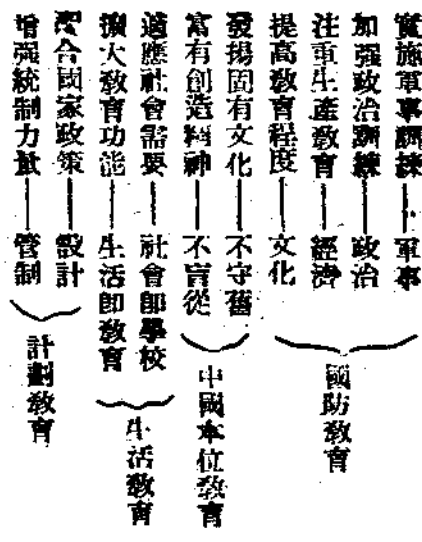 實施軍事訓練——軍事
加强政治訓練——政治
注重生產教育——經濟
提高教育程度——文化
國防教育
發揚固有文化——不守舊
富有創造精神——不盲從
中國本位教育
適應社會需要——社會即學校
擴大教育功能——生活即教育
生活教育
合國家政策——設計
增强統制力量——管制
計劃教育